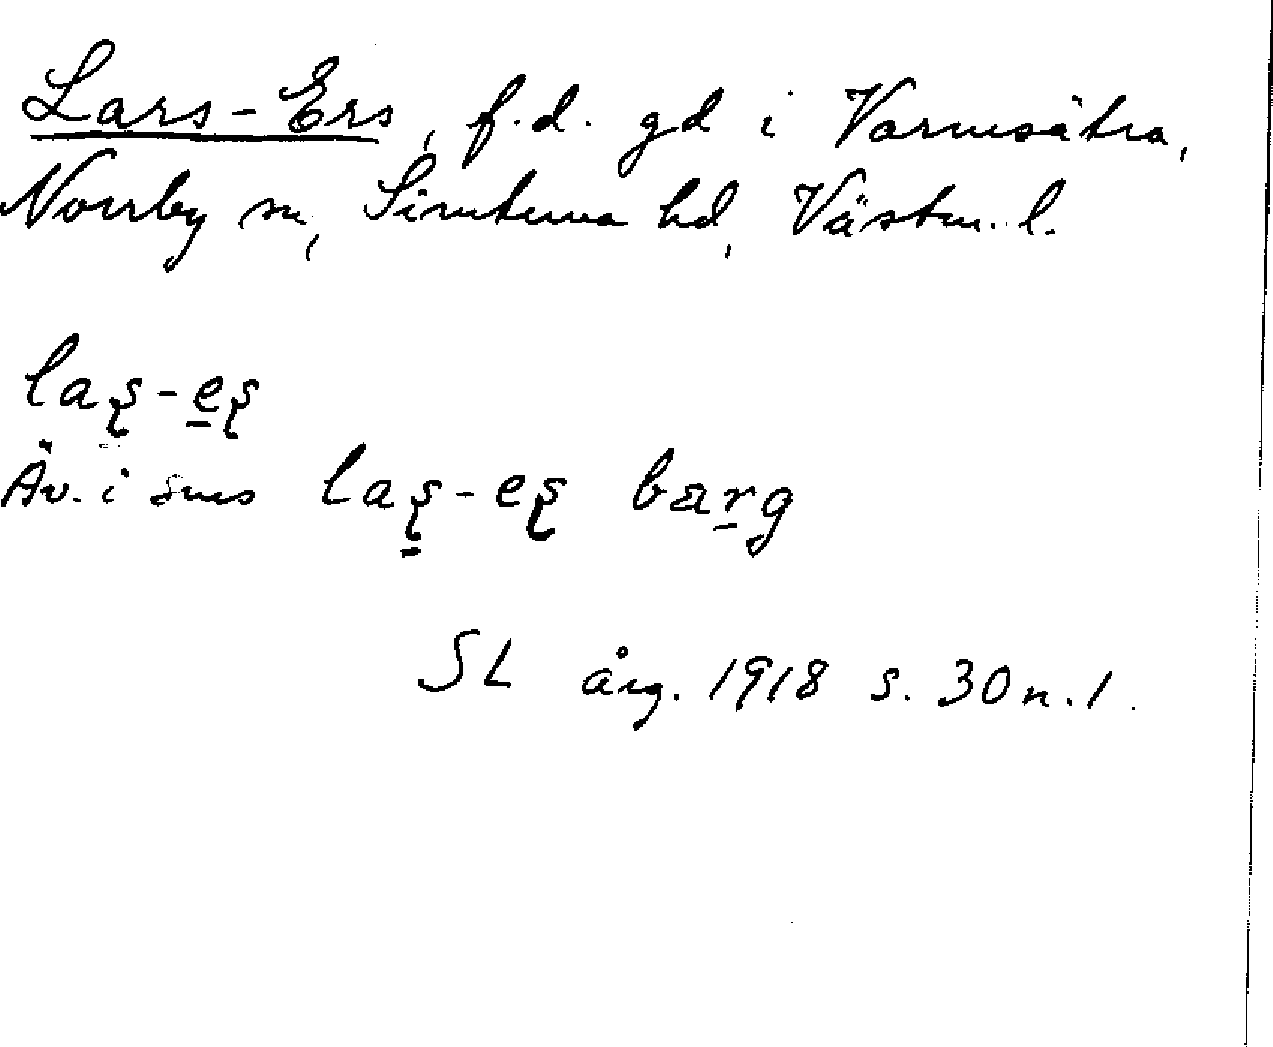 Lars-Ers, f.d. gd i Varmsätra,
Norrby sn, Simtuna hd, Västm. l.
laʂ-e̱ʂ
Äv. i sms laʂ̱-eʂ bæṟg
SL årg. 1918 s. 30 n. 1.